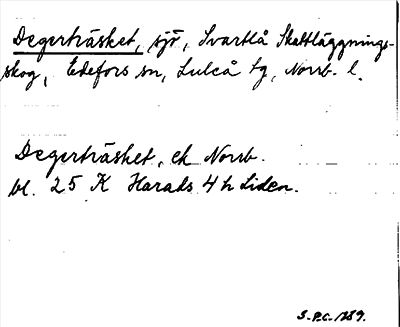 Degerträsket, sjö, Svartlå Skattläggnings-
skog, Edefors sn, Luleå tg, Norrb. l.
Degerträsket, ek Norrb.
bl. 25 K Harads 4 h Liden.
S.P.C. 1789.